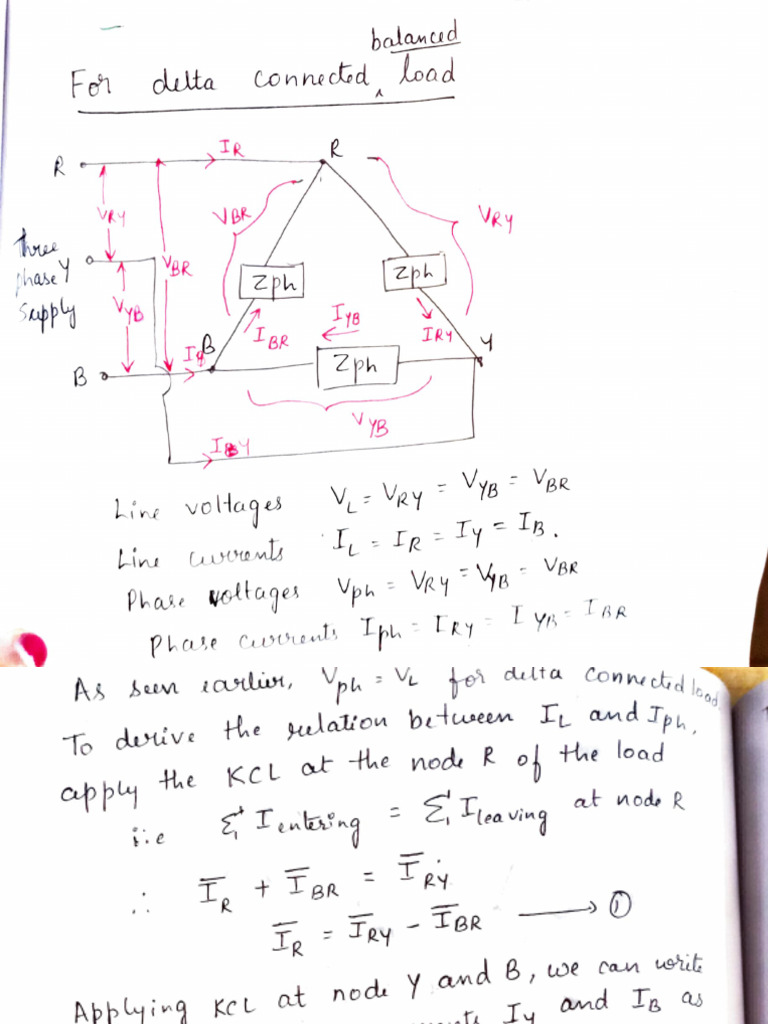 balanced
For delta connected ‸ load
R
I_R
R
V_RY
V_BR
V_BR
V_RY
Three
phase
Supply
Y
V_YB
Zph
Zph
I_BR
I_YB
I_RY
B
B
Zph
Y
V_YB
Line voltages V_L = V_RY = V_YB = V_BR
Line currents I_L = I_R = I_Y = I_B.
Phase voltages Vph = V_RY = V_YB = V_BR
Phase currents Iph = I_RY = I_YB = I_BR
As seen earlier, Vph = V_L for delta connected load.
To derive the relation between I_L and Iph,
apply the KCL at the node R of the load
i.e Σ I entering = Σ I leaving at node R
∴ I̅_R + I̅_BR = I̅_RY
I̅_R = I̅_RY - I̅_BR ⟶ ①
Applying KCL at node Y and B, we can write
I_Y and I_B as